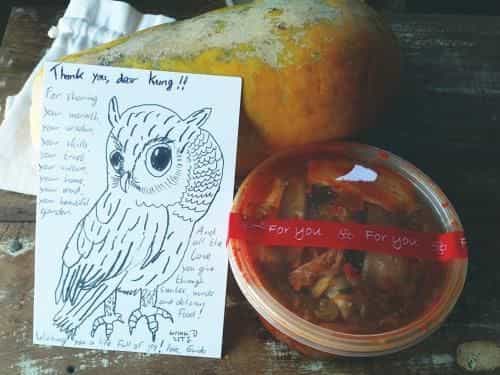 Thank you, dear Kung!!
For sharing
your warmth,
your wisdom,
your skills
your travel
your culture,
your home,
your food,
your beautiful
garden
And
all the
Love
you give
through
smiles, words
and delicious
Food!
Wishing you a life full of joy! Love, Guido
For you For you F